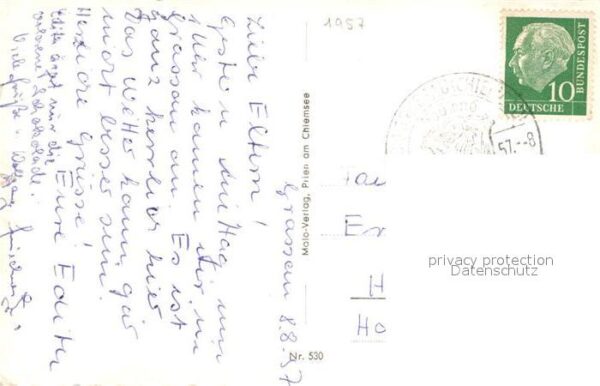 1957
BUNDESPOST
10
DEUTSCHE
57.-8
Grassau 8.8.57
Liebe Eltern!
Gestern Mittag um
1 Uhr kamen wir in
Grassau an. Es ist
ganz herrlich hier
Das Wetter kann gar
nicht besser sein.
Herzliche Grüsse!
Eure Edith
Viele Grüße v. Wolfgang
Malo-Verlag, Prien am Chiemsee
Nr. 530
Fa
Er
H
Ho
privacy protection
Datenschutz